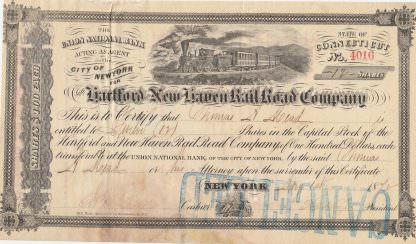 THE
UNION NATIONAL BANK
ACTING AS AGENT
IN THE
CITY OF NEW YORK
FOR
STATE OF
CONNECTICUT
No. 4016
SHARES
SHARES $100 EACH
The Hartford & New Haven Rail Road Company
This is to Certify that Thomas A. Mead is
entitled to Shares in the Capital Stock of the
Hartford and New Haven Rail Road Company, of One Hundred Dollars, each
transferable at the UNION NATIONAL BANK, OF THE CITY OF NEW YORK, by the said Thomas
A. Mead or his Attorney upon the surrender of this Certificate
NEW YORK
Cashier
President
CANCELLED